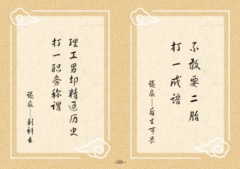 不敢要二胎
打一成语
谜底——后生可畏
理工男却精通历史
打一职务称谓
谜底——副科长